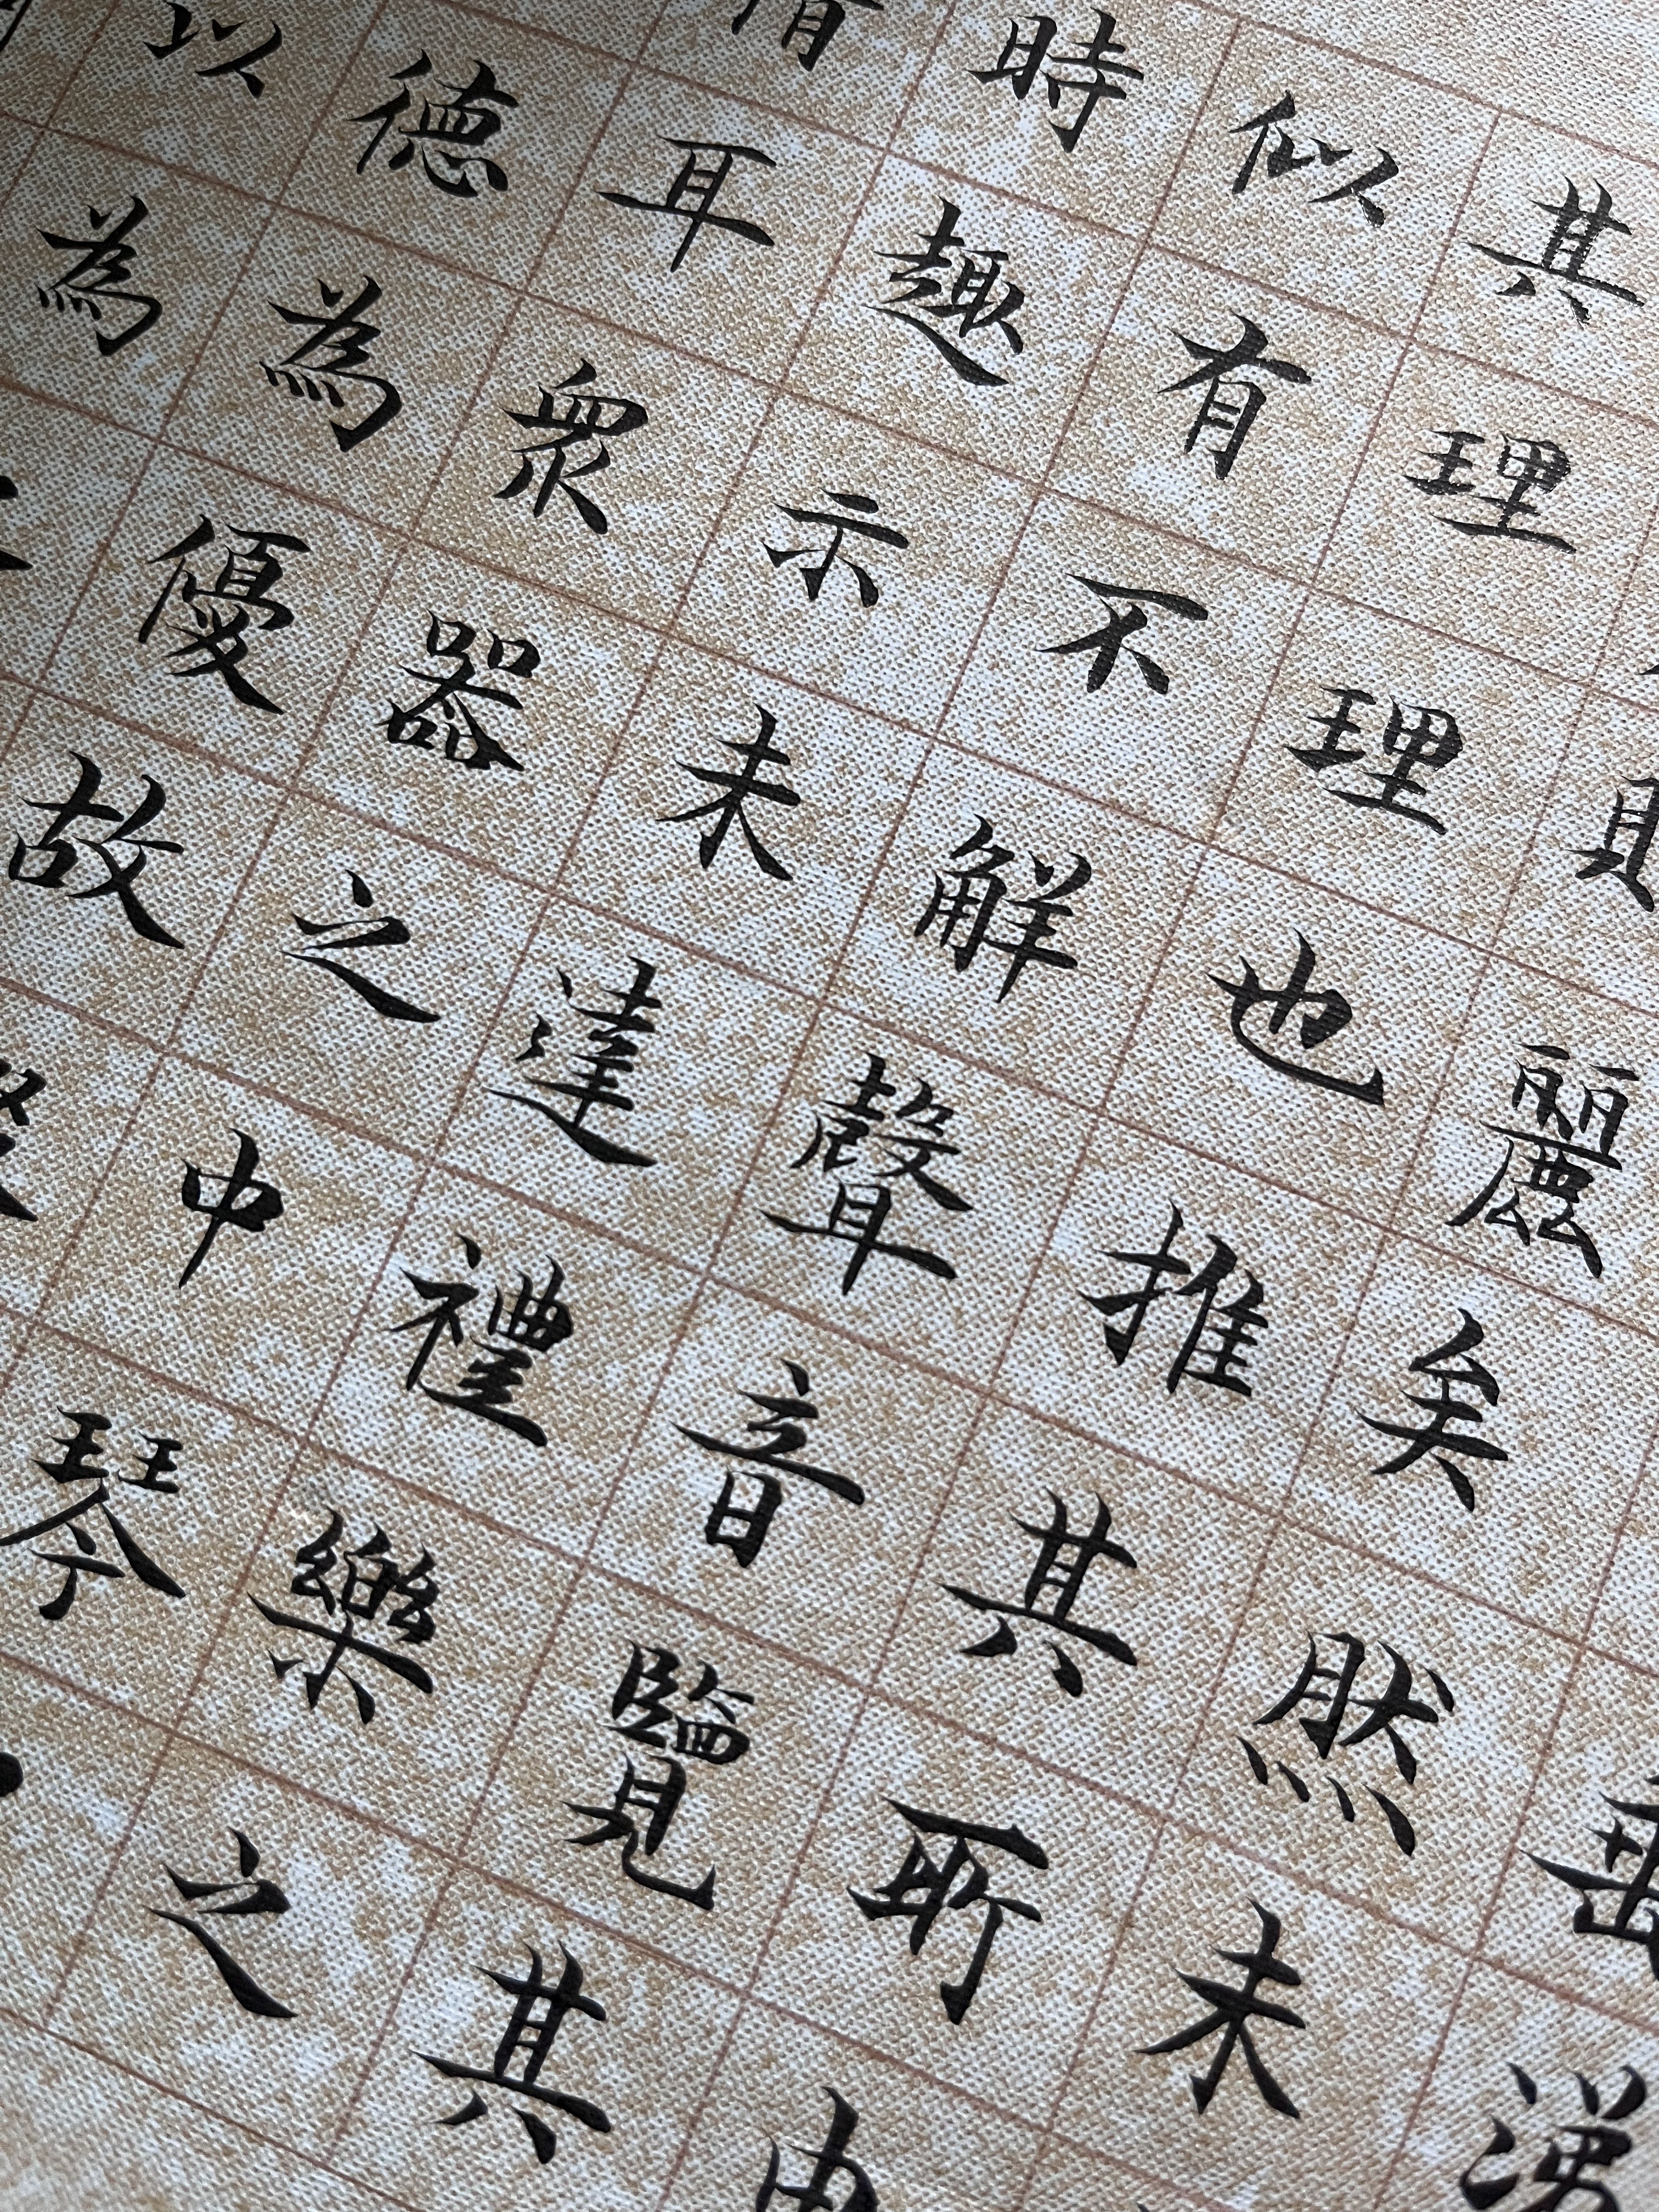 垂涕
麗矣然未
其理理也推其所由
似有不解聲音覽其
時趣示未達禮樂之
耳眾器之中琴
德為優故
以為